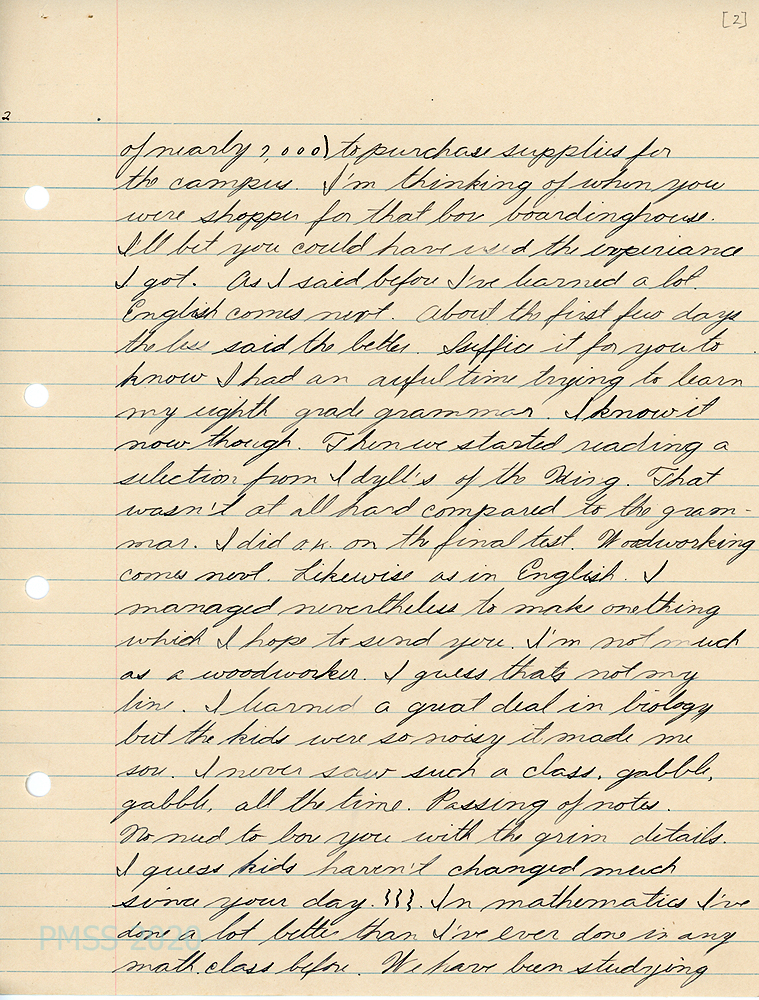 [2]
2
of nearly 2,000) to purchase supplies for
the campus. I'm thinking of when you
were shopper for that boy boardinghouse.
I'll bet you could have used the experiance
I got. As I said before I've learned a lot.
English comes next. About the first few days
the less said the better. Suffice it for you to
know I had an awful time trying to learn
my eighth grade grammar. I know it
now though. Then we started reading a
selection from Idyll's of the King. That
wasn't at all hard compared to the gram-
mar. I did o.k. on the final test. Woodworking
comes next. Likewise as in English. I
managed nevertheless to make onething
which I hope to send you. I'm not much
as a woodworker. I guess thats not my
line. I learned a great deal in biology
but the kids were so noisy it made me
sore. I never saw such a class, gabble,
gabble, all the time. Passing of notes.
No need to bore you with the grim details.
I guess kids haven't changed much
since your day. }}}. In mathematics I've
done a lot better than I've ever done in any
math class before. We have been studying
PMSS 2020